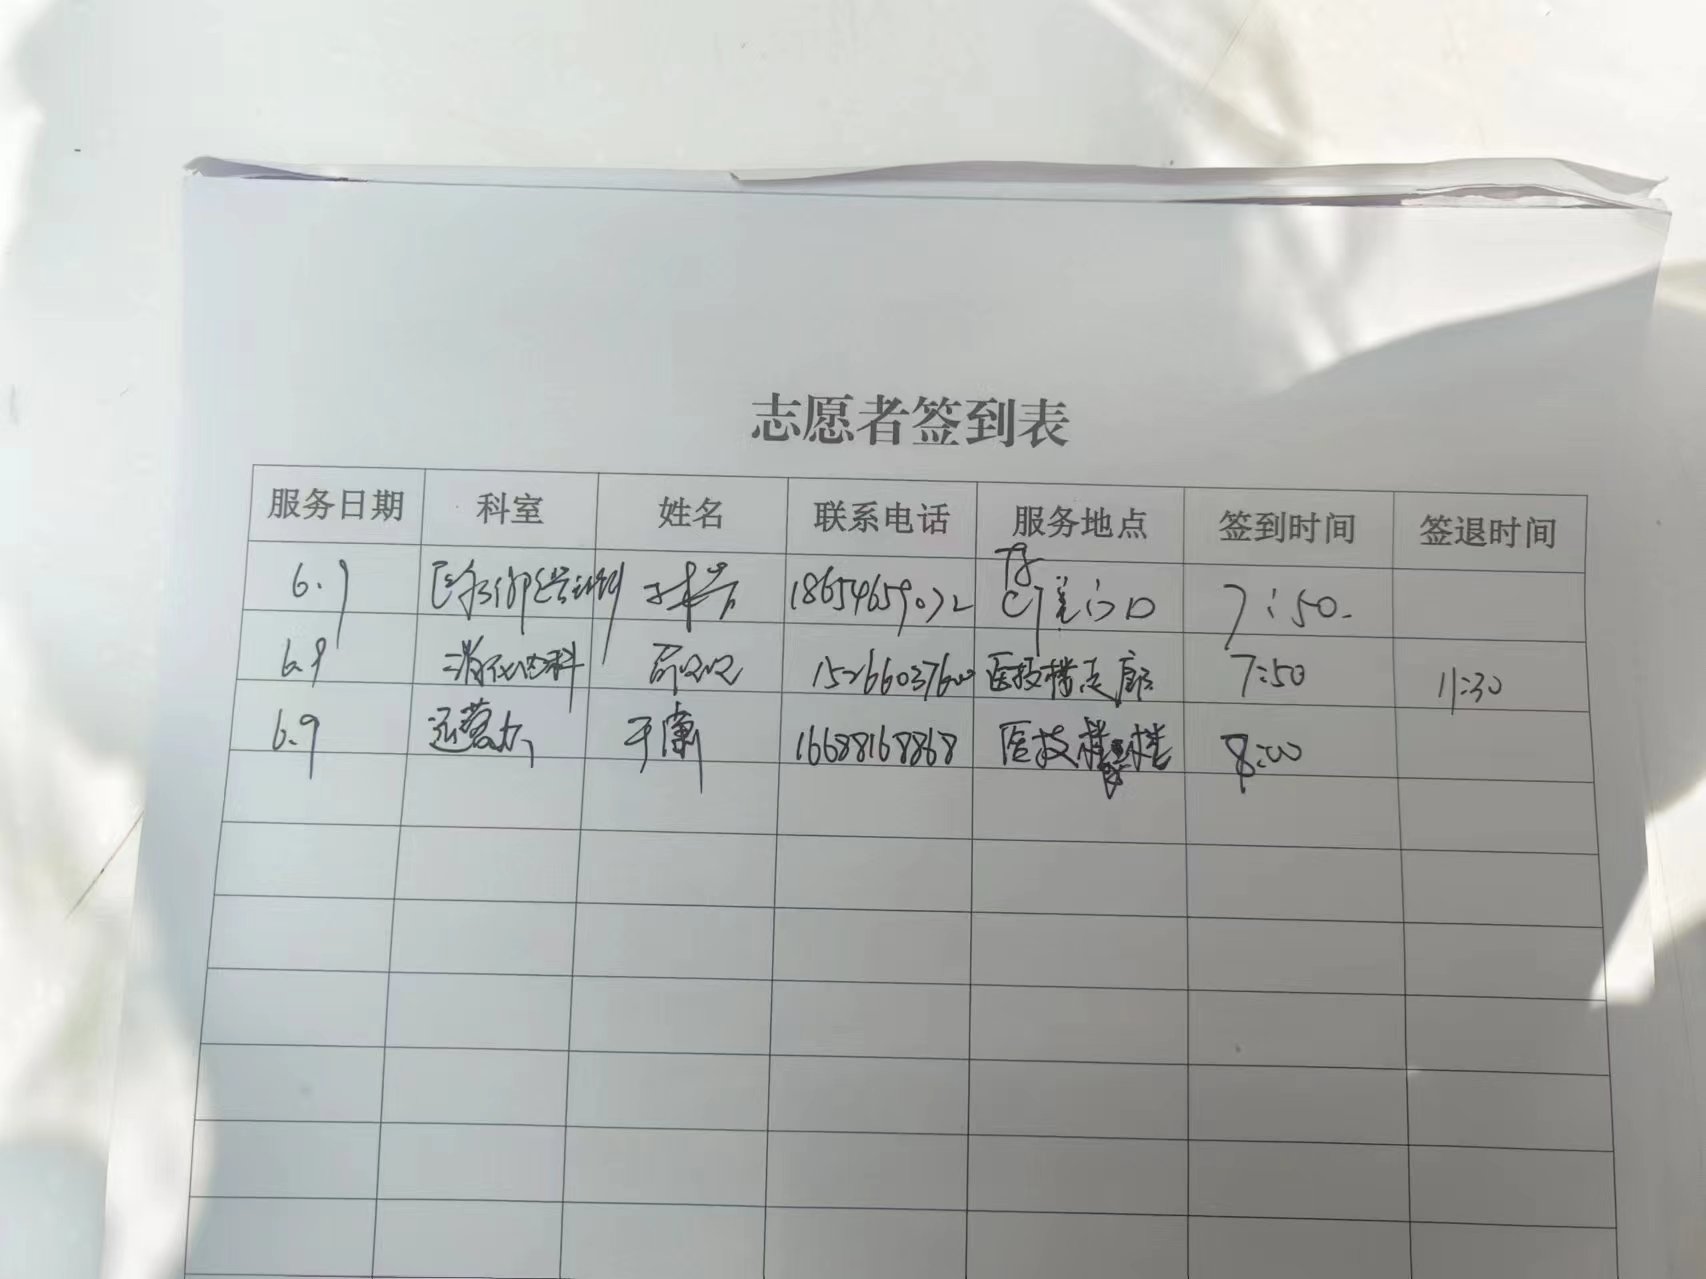 志愿者签到表
服务日期 科室 姓名 联系电话 服务地点 签到时间 签退时间
6.9 18654659072 门口 7:50.
6.9 消化内科 15266037600 医技楼走廊 7:50 11:30
6.9 运营办 于潇 16688168868 医技楼 楼 8:00